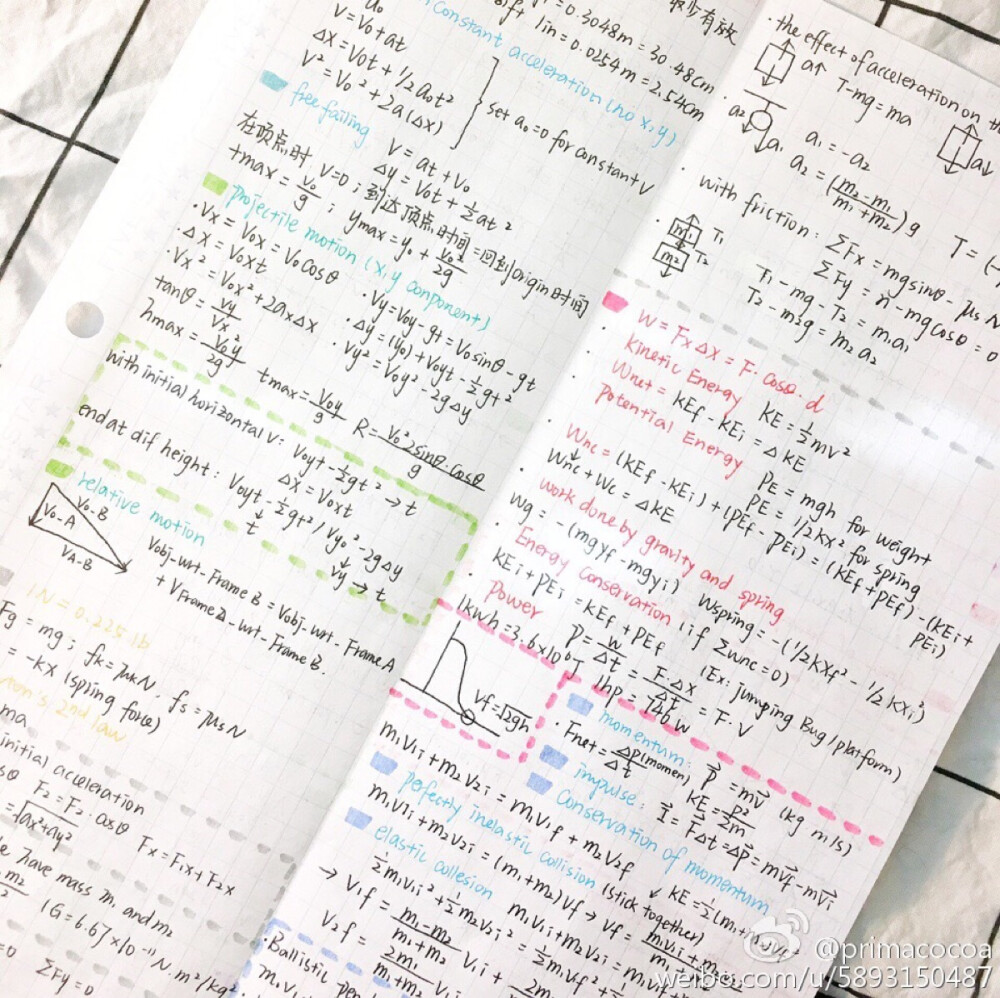 1in = 0.0254m = 2.54cm
0.3048m = 30.48cm
constant acceleration (no x, y)
V = V₀ + at
Δx = V₀t + 1/2 a₀t²
V² = V₀² + 2a(Δx)
set a₀=0 for constant V
free failing
V = at + V₀
Δy = V₀t + ½at²
在顶点时 V=0；到达顶点时间=回到origin时间
tmax = V₀/g ; ymax = y₀ + V₀²/2g
projectile motion (x, y conponent)
·Vx = V₀x = V₀cosθ
·Δx = V₀xt
·Vx² = V₀x² + 2axΔx
·Vy = V₀y - gt = V₀sinθ - gt
·Δy = (y₀) + V₀yt - ½gt²
·Vy² = V₀y² - 2gΔy
tanθ = Vy/Vx
hmax = V₀²y/2g
tmax = V₀y/g
R = V₀²2sinθ·cosθ/g
with initial horizontal v: V₀yt - ½gt² → t
Δx = V₀xt
end at dif height: V₀yt - ½gt² / Vy₀² - 2gΔy
t
Vy → t
relative motion
V₀-A
V₀-B
VA-B
Vobj-wrt-Frame B = Vobj-wrt-Frame A
+ VFrame A-wrt-Frame B.
1N = 0.225 lb
Fg = mg ; fk = μkN. fs = μsN
= -kx (spring force)
2nd law
ma
initial acceleration
F₂ = F₂·cosθ
Fx = F₁x + F₂x
= √ax²+ay²
have mass m₁ and m₂
(G = 6.67×10⁻¹¹ N.m²/kg²
=0 ΣFy = 0
·the effect of acceleration on the
a↑ T-mg = ma
a↓
a₂
a₁
a₁ = -a₂
a₂ = (m₂-m₁/m₁+m₂)g
T = (
·with friction: ΣFx = mgsinθ - μsN
ΣFy = n - mgcosθ = 0
m₁ T₁
m₂ T₂
T₁ - mg - T₂ = m₁a₁
T₂ - m₂g = m₂a₂
W = FxΔx = F·cosθ·d
·Kinetic Energy KE = ½mv²
Wnet = KEf - KEi = ΔKE
·Potential Energy PE = mgh for weight
PE = 1/2kx² for spring
Wnc = (KEf - KEi) + (PEf - PEi) = (KEf + PEf) - (KEi + PEi)
Wnc + Wc = ΔKE
·work done by gravity and spring
Wg = -(mgyf - mgyi) Wspring = -(1/2kxf² - 1/2kxi²)
·Energy conservation (if ΣWnc=0)
KEi + PEi = KEf + PEf (Ex: jumping Bug/platform)
·Power P = W/Δt = F·Δx/Δt = F·V
1kwh = 3.6×10⁶J 1hp = 746w
Vf = √2gh
momentum: p = mv (kg m/s)
·Fnet = Δp(momen)/Δt KE = p²/2m
impulse: I = FΔt = Δp = mvf - mvi
conservation of momentum
m₁V₁i + m₂V₂i = m₁V₁f + m₂V₂f
perfectly inelastic collision (stick together)
m₁V₁i + m₂V₂i = (m₁+m₂)Vf → Vf = m₁V₁i + m
KE = ½(m₁+
elastic collesion m₁V₁i + m₂V₂i = m₁V₁f
½m₁V₁i² + ½m₂V₂i² = ½m₁Vf² +
→ V₁f = m₁-m₂/m₁+m₂ V₁i +
V₂f = 2m₁/m₁+m₂ V₁i +
·Ballistic
@primacocoa
weibo.com/u/5893150487